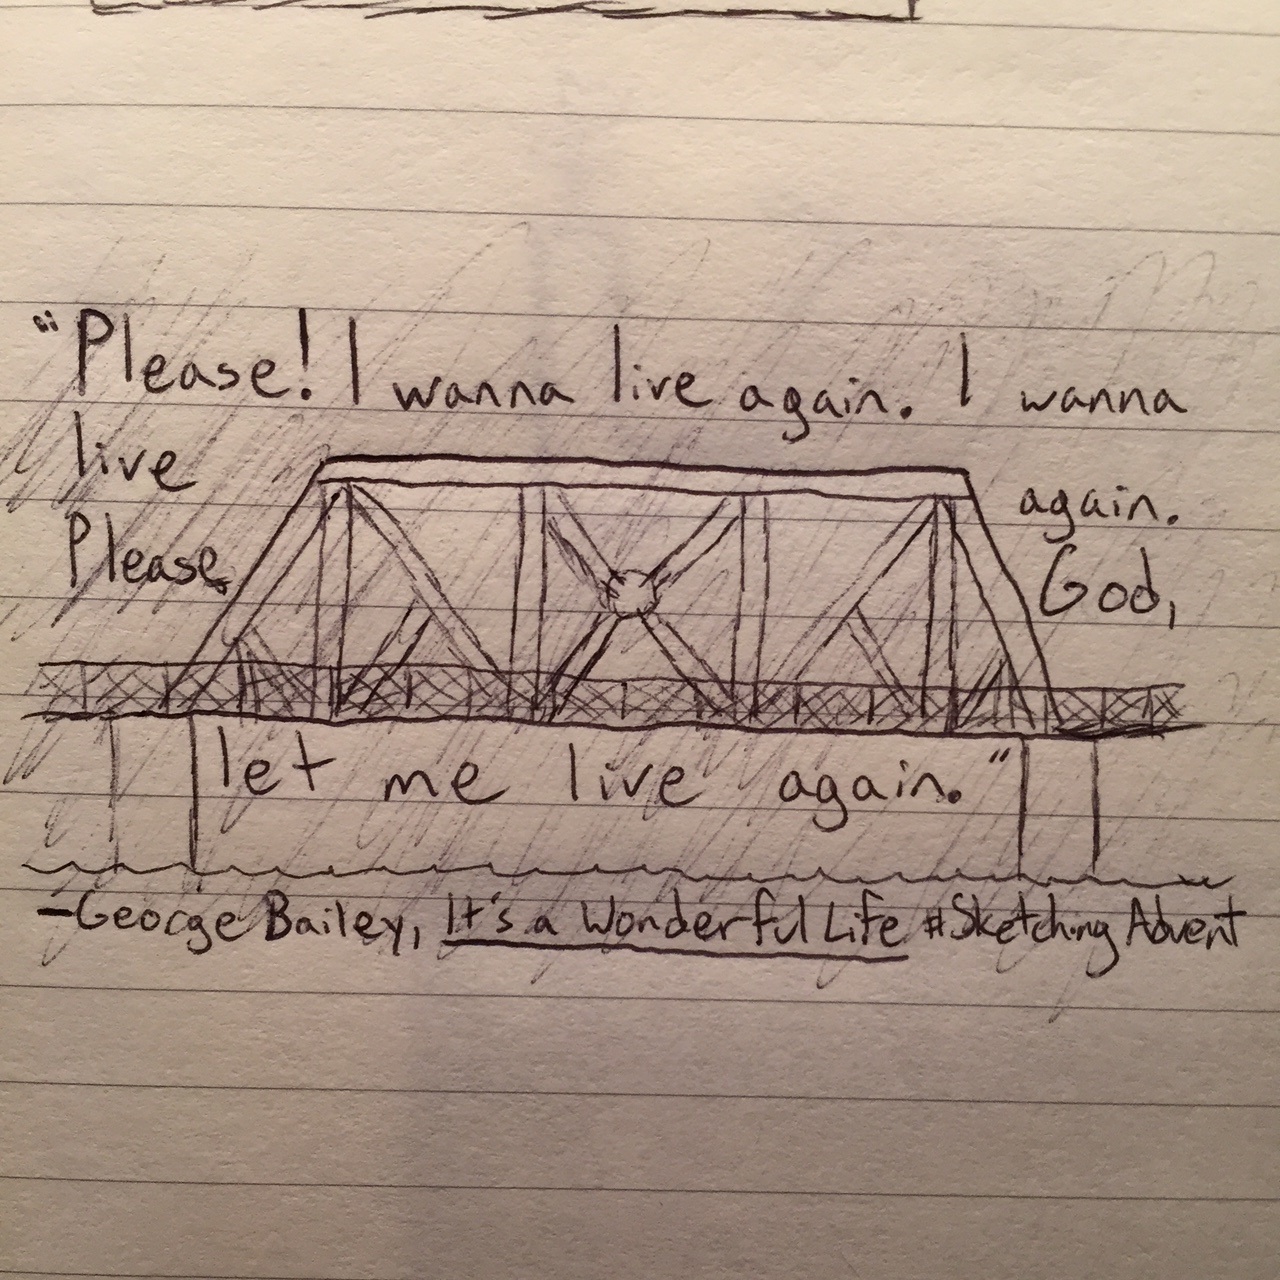 “Please! I wanna live again. I wanna
live again.
Please God,
let me live again.”
—George Bailey, It's a Wonderful Life #SketchingAdvent